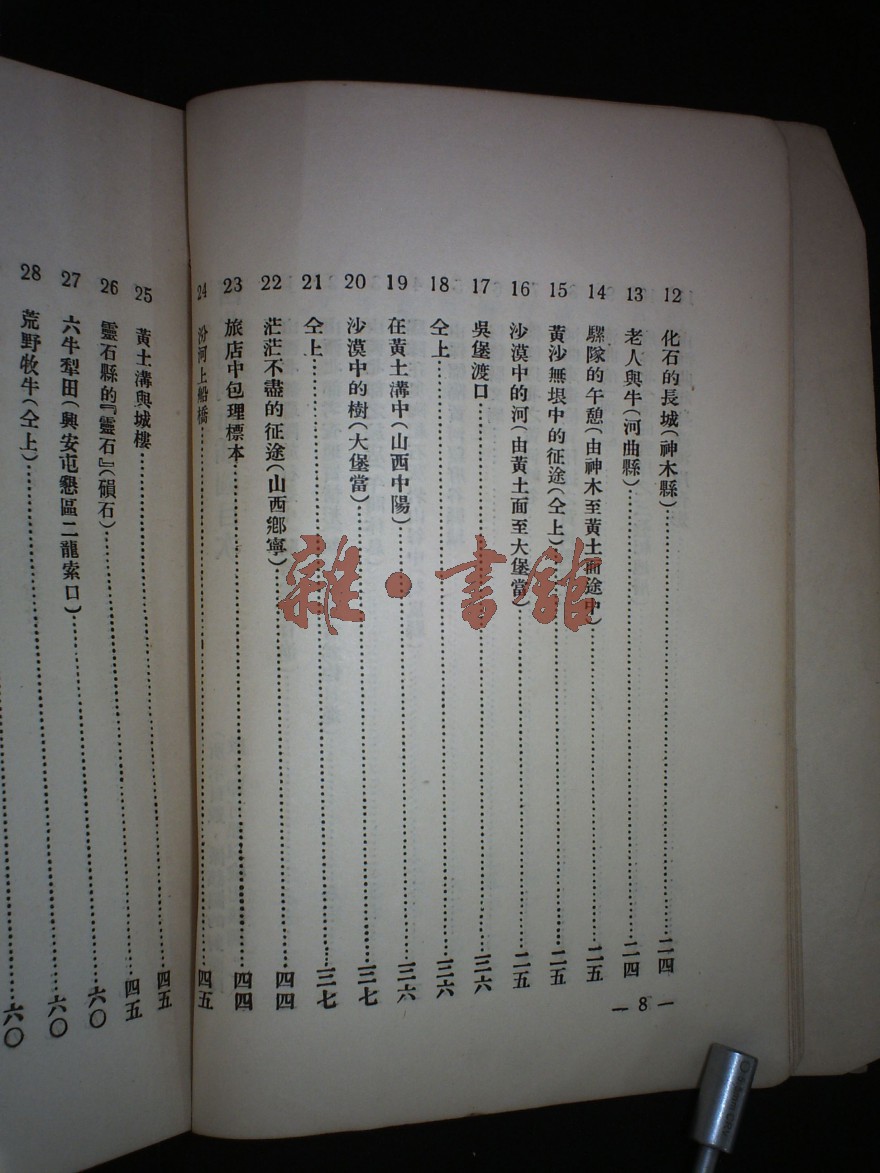 12 化石的長城(神木縣)……二四
13 老人與牛(河曲縣)……二四
14 騾隊的午憩(由神木至黃土面途中)……二五
15 黃沙無垠中的征途(仝上)……二五
16 沙漠中的河(由黃土面至大堡當)……二五
17 吳堡渡口……三六
18 仝上……三六
19 在黃土溝中(山西中陽)……三六
20 沙漠中的樹(大堡當)……三七
21 仝上……三七
22 茫茫不盡的征途(山西鄉寧)……四四
23 旅店中包理標本……四四
24 汾河上船橋……四五
— 8 —
25 黃土溝與城樓……四五
26 靈石縣的『靈石』(隕石)……四五
27 六牛犁田(興安屯懇區二龍索口)……六〇
28 荒野牧牛(仝上)……六〇
……六〇
雜·書館